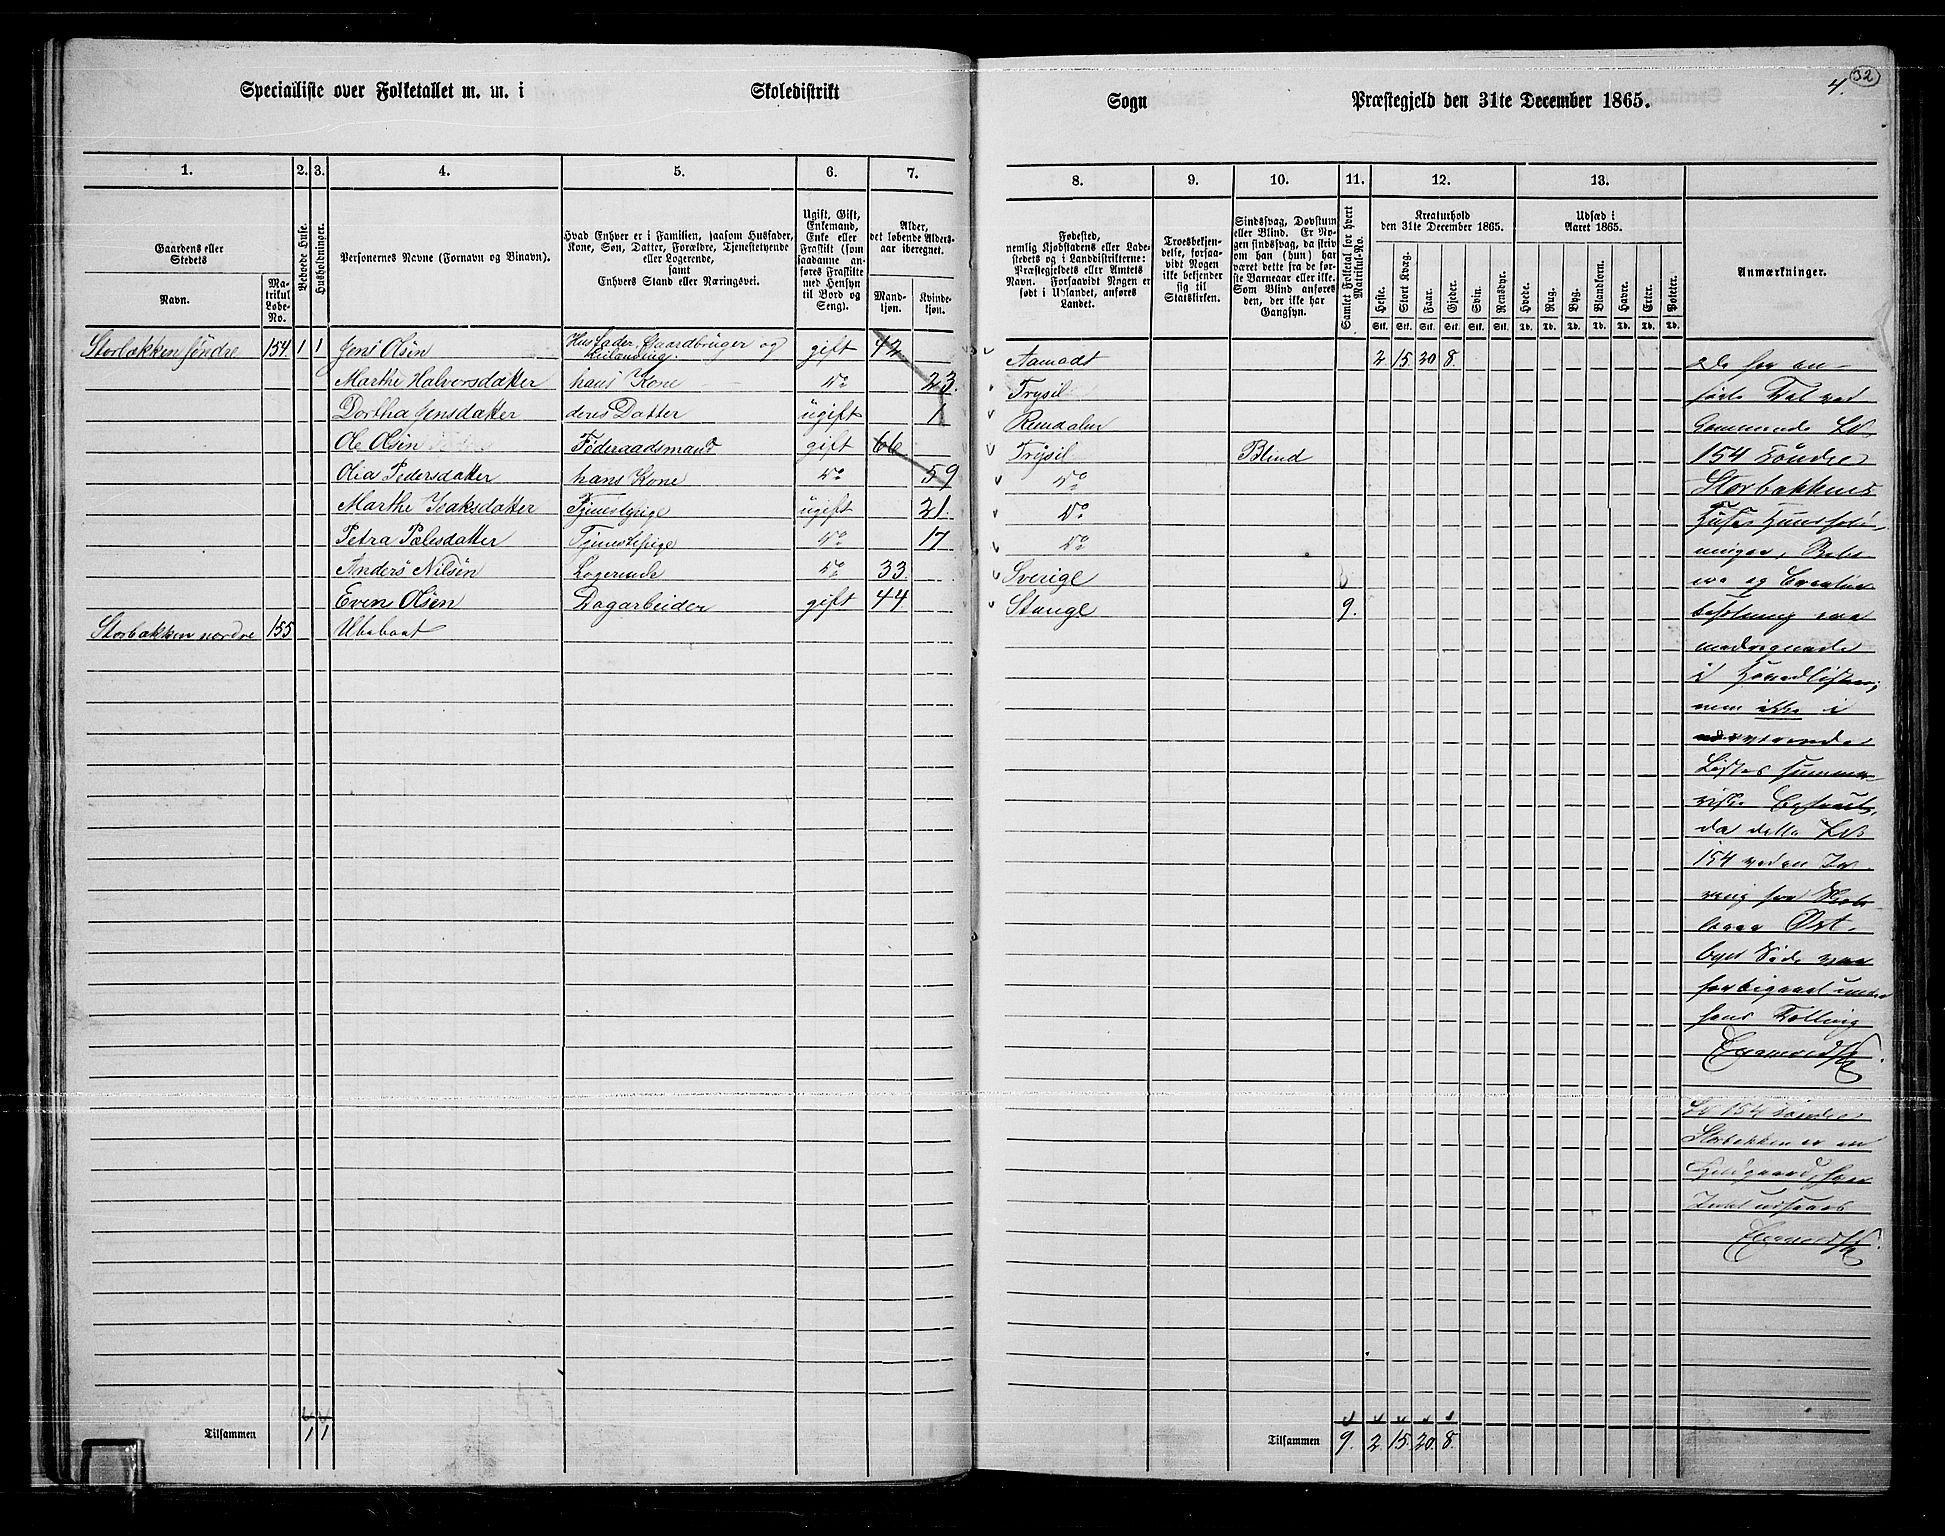 Specialliste over Folketallet m. m. i Skoledistrikt
Sogn Præstegjeld den 31te December 1865.
4.
32
1. 2. 3. 4. 5. 6. 7.
Gaardens eller Stedets
Navn.
Matrikul Løbe-No.
Beboede Huse.
Husholdninger.
Personernes Navne (Fornavn og Binavn).
Hvad Enhver er i Familien, saasom Husfader,
Kone, Søn, Datter, Forældre, Tjenestetyende
eller Logerende,
samt
Enhvers Stand eller Næringsvei.
Ugift, Gift,
Enkemand,
Enke eller
Fraskilt (som
saadanne an-
føres Fraskilte
med Hensyn
til Bord og
Seng).
Alder,
det løbende Alders-
aar iberegnet.
Mand-
kjøn.
Kvinde-
kjøn.
8. 9. 10. 11. 12. 13.
Fødested,
nemlig Kjøbstadens eller Lade-
stedets og i Landdistrikterne:
Præstegjeldets eller Amtets
Navn. Forsaavidt Nogen er
født i Udlandet, anføres
Landet.
Troesbekjen-
delse, forsaa-
vidt Nogen
ikke bekjender
sig til
Statskirken.
Sindssvag, Døvstum
eller Blind. Er No-
gen sindssvag, da skriv
om han (hun) har
været dette fra de før-
ste Barneaar eller ikke.
Som Blind anføres
den, der ikke har
Gangsyn.
Samlet Folketal for hvert Matrikul-No.
Kreaturhold
den 31te December 1865.
Heste. Stort Kvæg. Faar. Gjeder. Svin. Rensdyr.
Stk. Stk. Stk. Stk. Stk. Stk.
Udsæd i
Aaret 1865.
Hvede. Rug. Byg. Blandkorn. Havre. Erter. Poteter.
Td. Td. Td. Td. Td. Td. Td.
Anmærkninger.
Storbækken søndre 154 1 1 Jens Olsen Husfader, Gaardbruger og gift 42 Aamodt 2 15 20 8
Marthe Halversdatter hans Kone do 23. Trysil
Dorthea Jensdatter deres Datter ugift 1 Rendalen
Ole Olsen Føderaadsmand gift 66 Trysil Blind
Olea Pedersdatter hans Kone do 59 do
Marthe Isaksdatter Tjenestepige ugift 21. do
Petra Palesdatter Tjenestepige do 17 do
Anders Nilsen Logerende do 33. Sverige
Even Olsen Dagarbeider gift 44. Stange 9.
Storbækken nordre 155 Ubeboet
De her an-
førte Tal ved
154 Søndre
Storbækkens
i Hovedlisten,
men ikke i
nærværende
Listes summa-
da dette Lb
154 ved en
byes Side var
forbigaaet under
hans Tælling
Lb 154 Søndre
Storbækken er en
Tilsammen 1 1
Tilsammen 9. 2 15 20 8